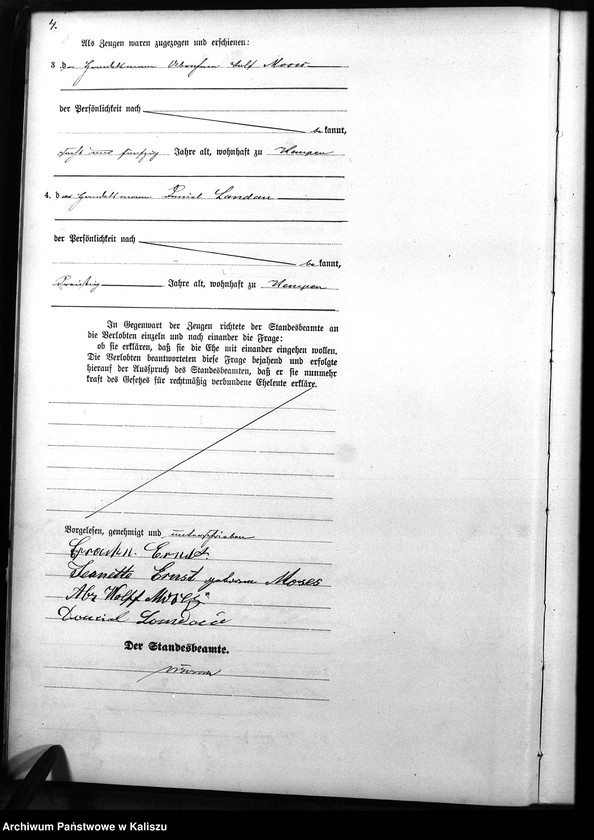 4.
Als Zeugen waren zugezogen und erschienen:
3 der Handelsmann Abraham Wolf Moses
der Persönlichkeit nach
bekannt,
sechs und fünfzig Jahre alt, wohnhaft zu Kempen
4. der Handelsmann Daniel Landau
der Persönlichkeit nach
bekannt,
Dreißig Jahre alt, wohnhaft zu Kempen
In Gegenwart der Zeugen richtete der Standesbeamte an
die Verlobten einzeln und nach einander die Frage:
ob sie erklären, daß sie die Ehe mit einander eingehen wollen.
Die Verlobten beantworteten diese Frage bejahend und erfolgte
hierauf der Ausspruch des Standesbeamten, daß er sie nunmehr
kraft des Gesetzes für rechtmäßig verbundene Eheleute erkläre.
Vorgelesen, genehmigt und unterschrieben
Ernst
Jeanette Ernst geborene Moses
Abr Wolff Moses
Daniel Landau
Der Standesbeamte.
Archiwum Państwowe w Kaliszu